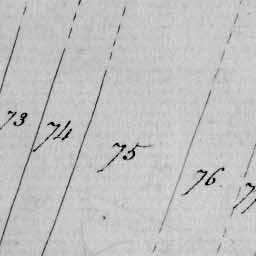 73
74
75
76